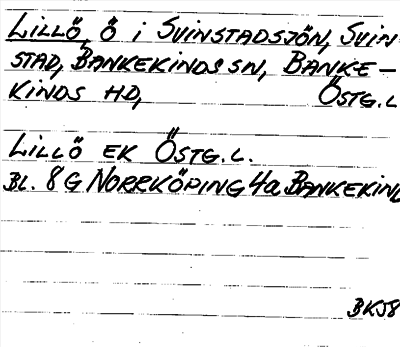 LILLÖ, Ö i SVINSTADSJÖN, SVIN-
STAD, BANKEKINDS SN, BANKE-
KINDS HD, ÖSTG.L
LILLÖ EK ÖSTG.L.
BL. 8G NORRKÖPING 4a BANKEKIND
BKJ8